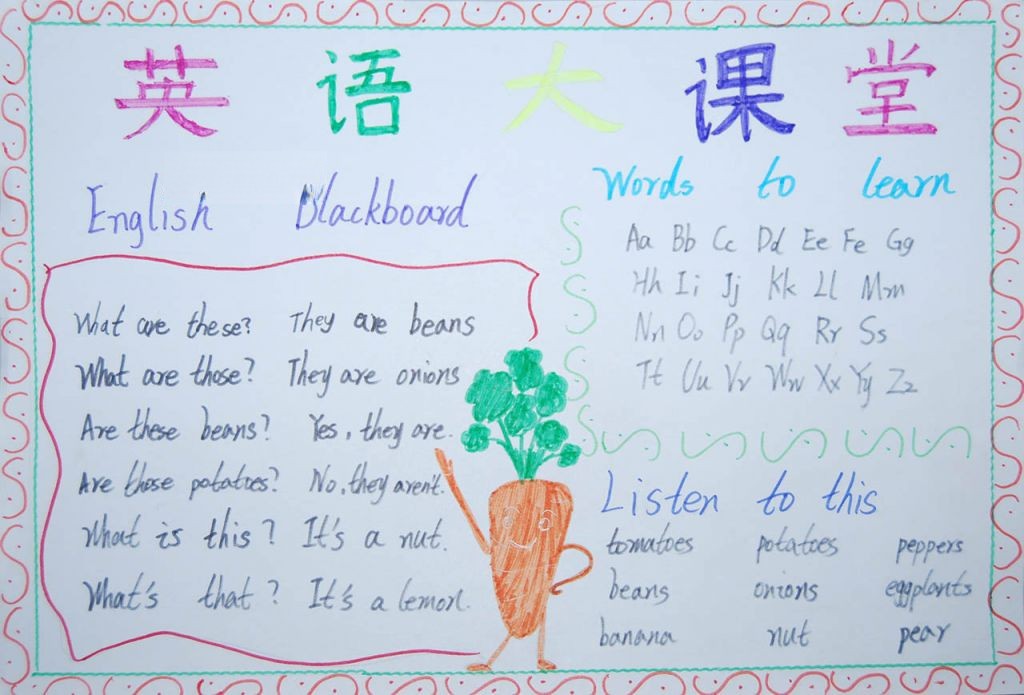 英语大课堂
English Blackboard
What are these? They are beans
What are those? They are onions
Are these beans? Yes, they are.
Are those potatoes? No, they aren't.
What is this? It's a nut.
What's that? It's a lemon.
Words to learn
Aa Bb Cc Dd Ee Fe Gg
Hh Ii Jj Kk Ll Mm
Nn Oo Pp Qq Rr Ss
Tt Uu Vv Ww Xx Yy Zz
Listen to this
tomatoes potatoes peppers
beans onions eggplants
banana nut pear